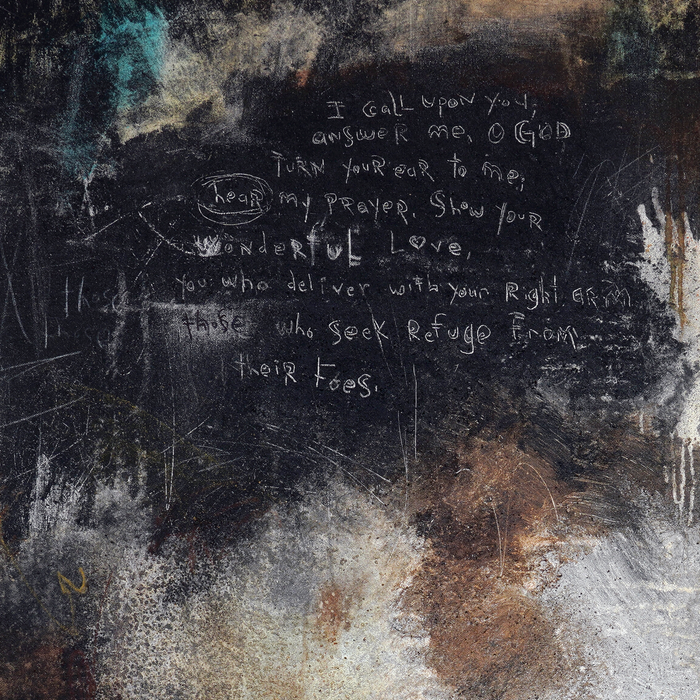 I call upon you;
answer me, O GOD
Turn your ear to me;
hear my prayer. Show your
wonderful Love,
you who deliver with your Right arm
those who seek Refuge from
their foes.
those
N